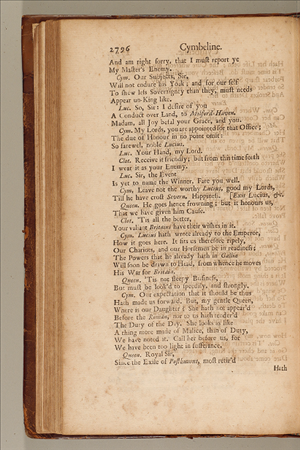 2796 Cymbeline.
And am right sorry, that I must report ye
My Master's Enemy.
Cym. Our Subjects, Sir,
Will not endure his Yoak; and for our self
To shew less Soveraignty than they, must needs
Appear un-King like.
Luc. So, Sir: I desire of you
A Conduct over Land, to Milford-Haven.
Madam, all Joy befal your Grace, and you.
Cym. My Lords, you are appointed for that Office;
The due of Honour in no point omit:
So farewel, noble Lucius.
Luc. Your Hand, my Lord.
Clot. Receive it friendly; but from this time forth
I wear it as your Enemy.
Luc. Sir, the Event
Is yet to name the Winner. Fare you well.
Cym. Leave not the worthy Lucius, good my Lords,
'Till he have crost Severn. Happiness. [Exit Lucius, &c.
Queen. He goes hence frowning; but it honours us,
That we have given him Cause.
Clot. 'Tis all the better,
Your valiant Britains have their wishes in it.
Cym. Lucius hath wrote already to the Emperor,
How it goes here. It fits us therefore ripely,
Our Chariots, and our Horsemen be in readiness;
The Powers that he already hath in Gallia
Will soon be drawn to Head, from whence he moves
His War for Britain.
Queen. 'Tis not sleepy Business,
But must be look'd to speedily, and strongly.
Cym. Our expectation that it should be thus
Hath made us forward. But, my gentle Queen,
Where is our Daughter? She hath not appear'd
Before the Roman, nor to us hath tender'd
The Duty of the Day. She looks as like
A thing more made of Malice, than of Duty,
We have noted it. Call her before us, for
We have been too light in sufferance.
Queen. Royal Sir,
Since the Exile of Posthumus, most retir'd
Hath